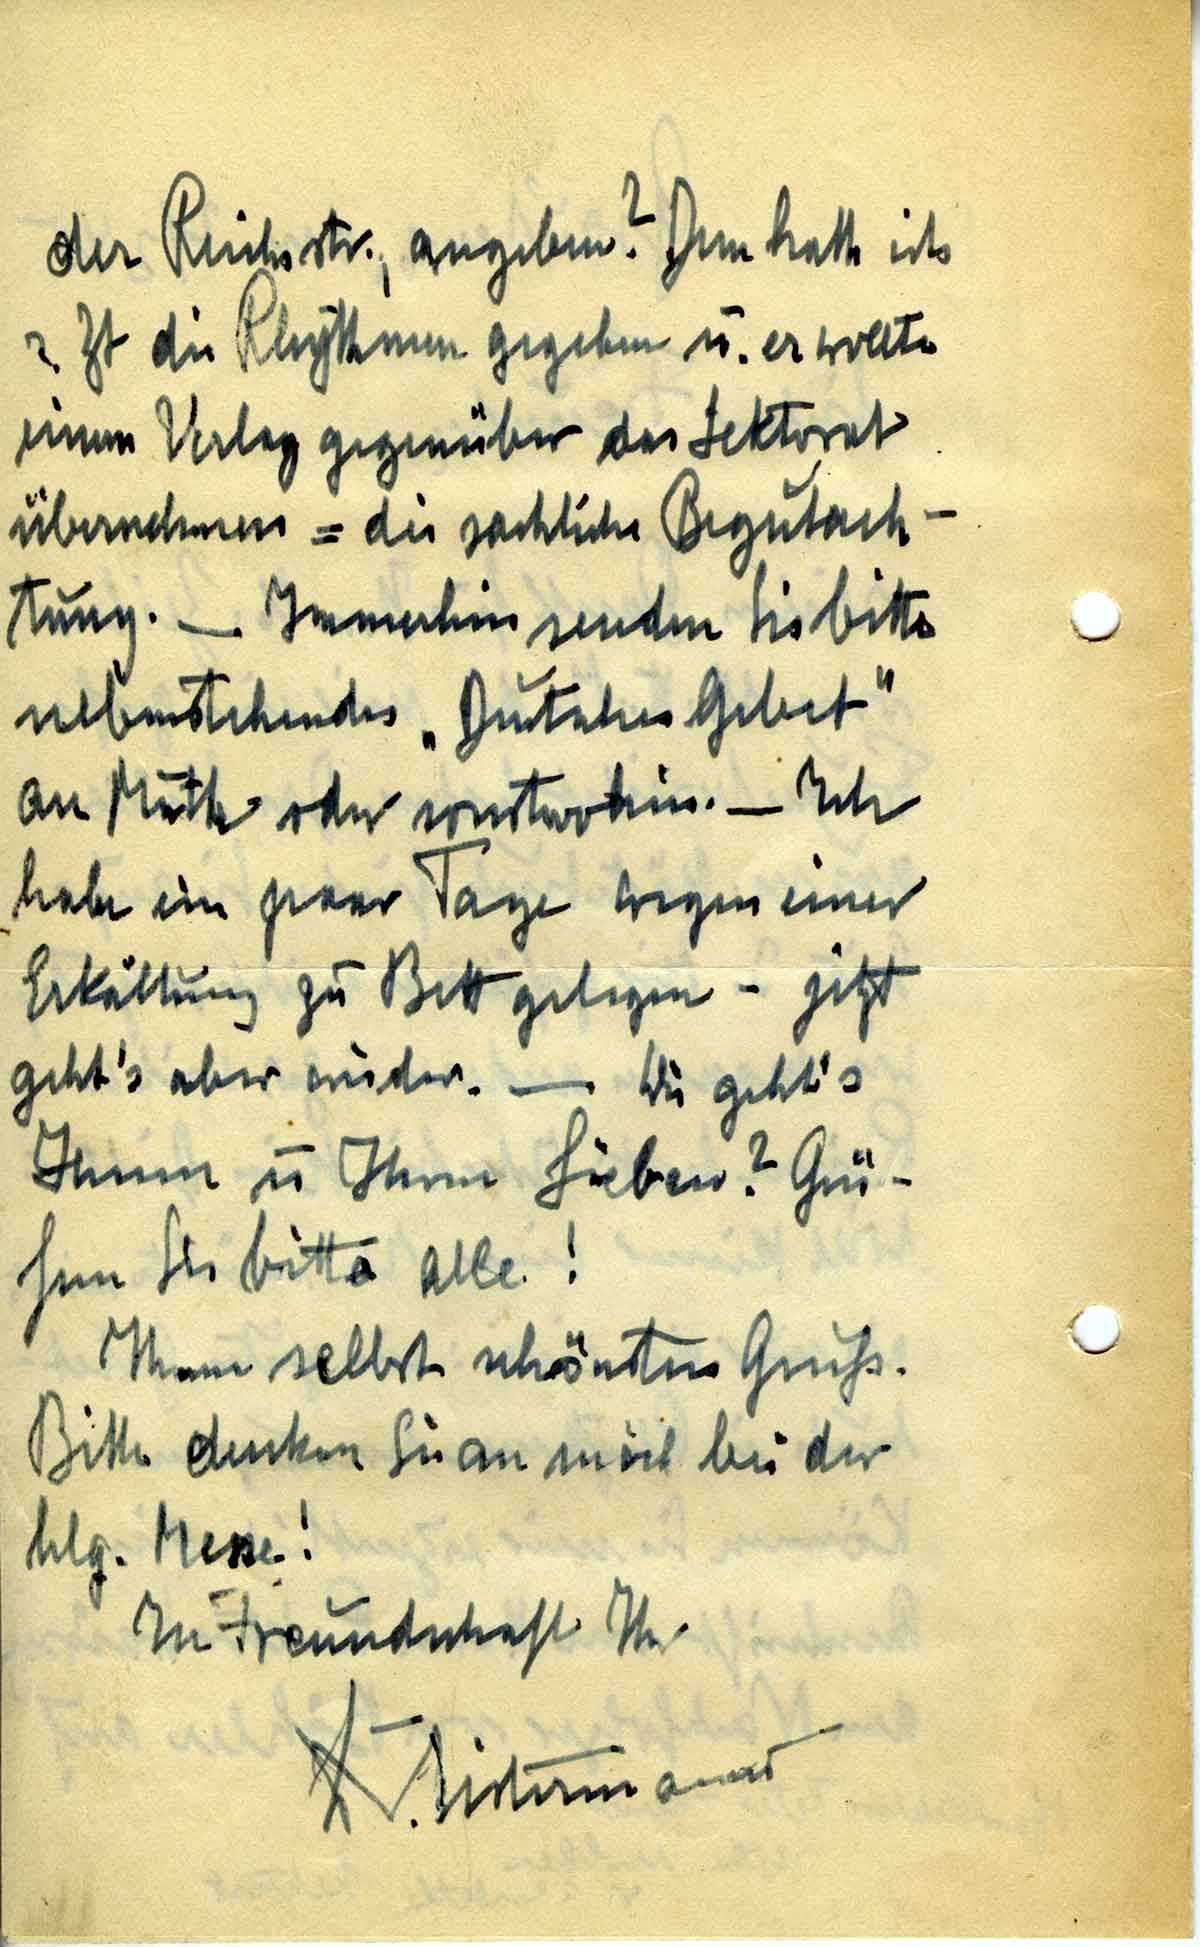 der Reichsstr., angeben? Dem hatte ich
z. Zt die Rhythmen gegeben u. er wollte
einem Verlag gegenüber das Lektorat
übernehmen = die sachliche Begutach-
tung. — Immerhin senden Sie bitte
nebenstehendes „Deutsches Gebet"
an Muth oder sonstwohin. — Ich
habe ein paar Tage wegen einer
Erkältung zu Bett gelegen - jetzt
geht's aber wieder. — Wie geht's
Ihnen u Ihren Lieben? Grü-
ßen Sie bitte alle!
Ihnen selbst schönsten Gruß.
Bitte denken Sie an mich bei der
hlg. Messe!
In Freundschaft Ihr